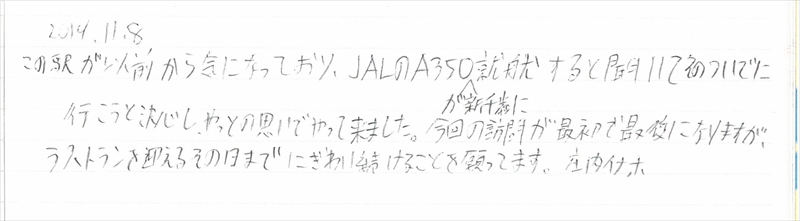 2019.11.8
この駅が以前から気になっており、JALのA350就航すると聞いてそのついでに
が新千歳に
行こうと決心し、やっとの思いでやって来ました。今回の訪問が最初で最後になりますが、
ラストランを迎えるその日までにぎわい続けることを願ってます。庄内